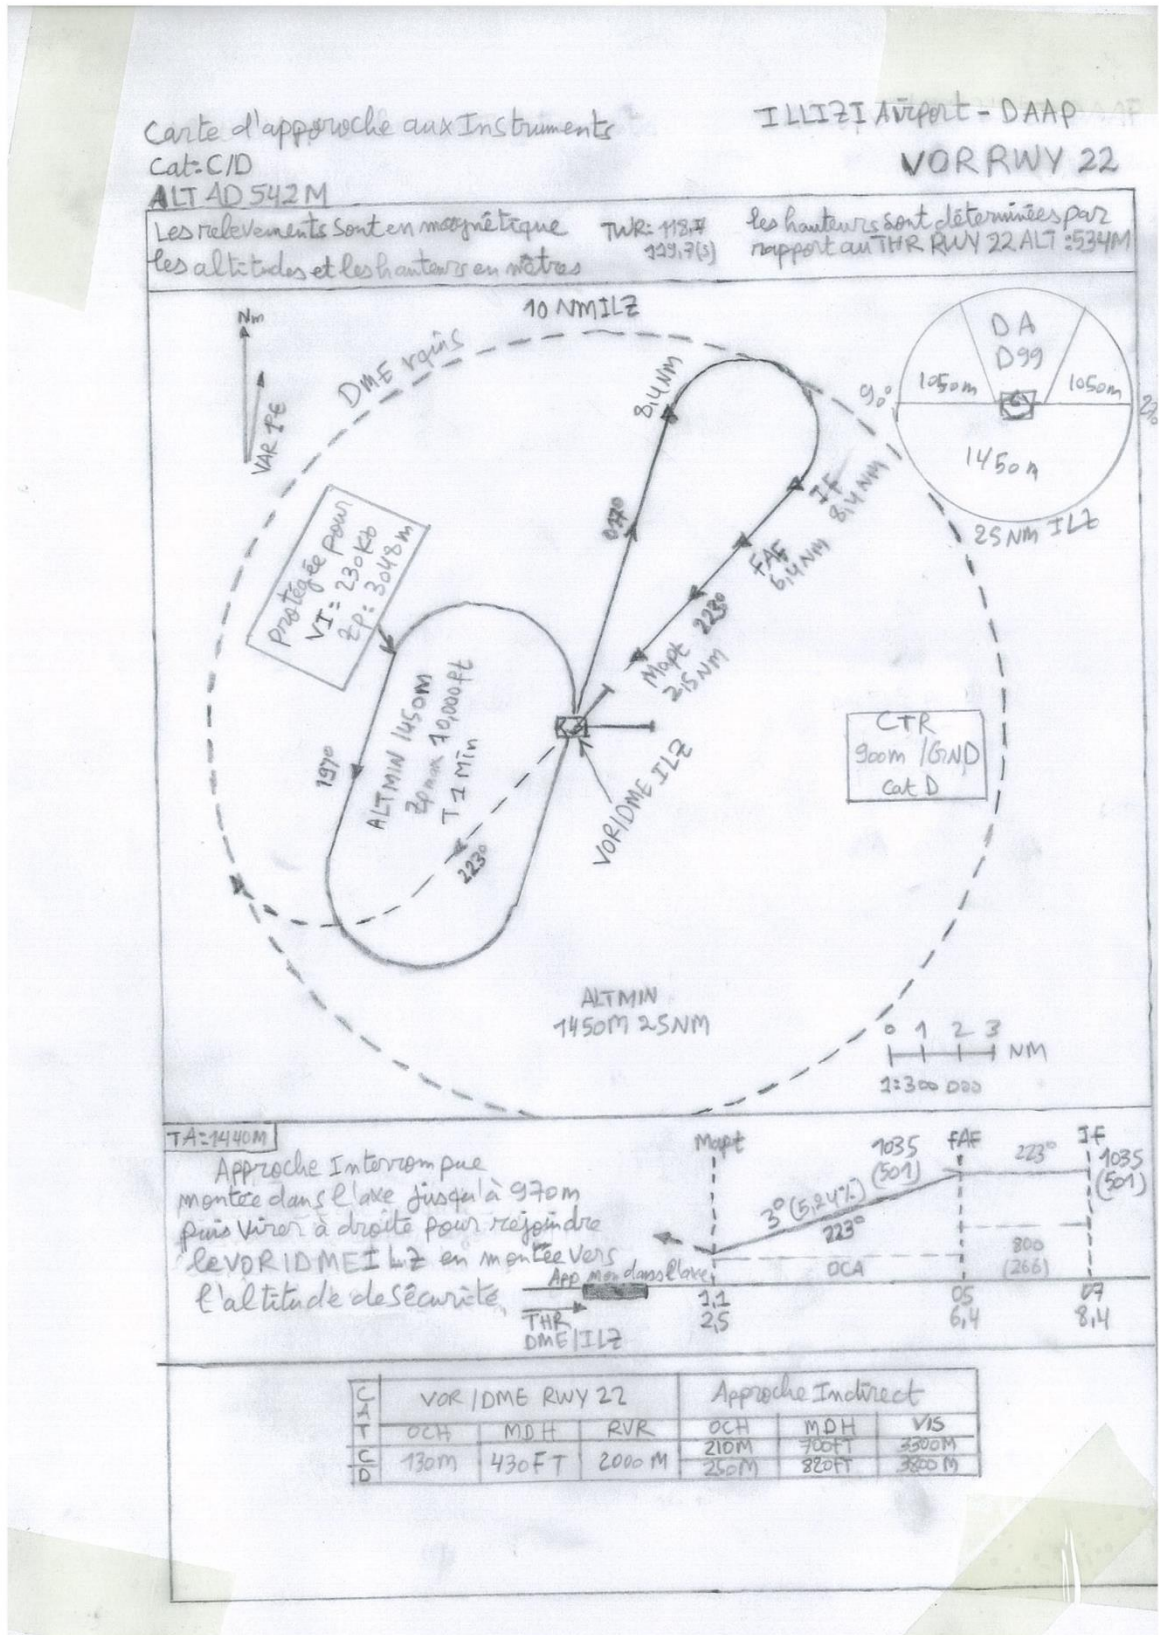 Carte d'approche aux Instruments
Cat: C/D
ALT AD 542M
ILLIZI Airport - DAAP
VOR RWY 22
Les relevements Sont en magnétique
les altitudes et les hauteurs en mètres
TWR: 118,7
119,7(s)
les hauteurs sont déterminées par
rapport au THR RWY 22 ALT :534M
10 NM ILZ
Nm
DME
8,4 NM
DA
D99
1050m
1050m
90°
1450m
25 NM ILZ
IF
8,4 NM
FAF
6,4 NM
223°
Mapt
2,5 NM
protégée pour
VI = 230Kb
Zp: 3048m
197°
ALTMIN 1450M
Zp max 10,000ft
T 1 Min
223°
VOR/DME ILZ
CTR
900m /GND
Cat D
ALTMIN
1450M 25NM
0 1 2 3
NM
1:300 000
TA=1440M
Approche Interrompue
montée dans l'axe jusqu'à 970m
puis virer à droite pour rejoindre
le VOR/DME ILZ en montée vers
l'altitude de Sécurité
Mapt
1035
(501)
FAF
223°
IF
1035
(501)
3° (5,24%)
223°
800
(266)
OCA
App mon dans l'axe
THR
DME/ILZ
1,1
2,5
05
6,4
07
8,4
CAT
VOR /DME RWY 22
Approche Indirect
OCH MDH RVR OCH MDH VIS
C 130m 430FT 2000 M 210M 700FT 3300M
D 250M 820FT 3800 M